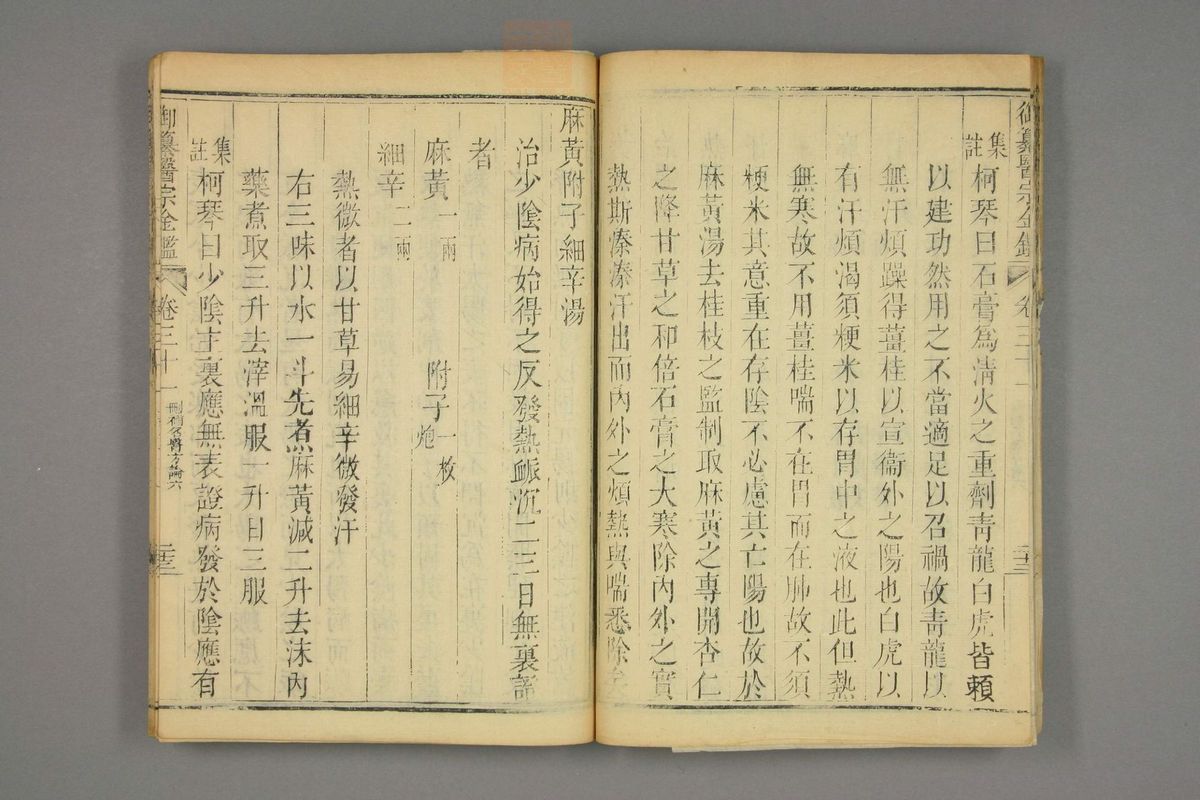 御纂醫宗金鑑 卷三十一 二十三
集註 柯琴曰石膏為清火之重劑靑龍白虎皆賴
以建功然用之不當適足以召禍故靑龍以
無汗煩躁得薑桂以宣衞外之陽也白虎以
有汗煩渴須粳米以存胃中之液也此但熱
無寒故不用薑桂喘不在胃而在肺故不須
粳米其意重在存陰不必慮其亡陽也故於
麻黃湯去桂枝之監制取麻黃之專開杏仁
之降甘草之和倍石膏之大寒除內外之實
熱斯溱溱汗出而內外之煩熱與喘悉除矣
麻黃附子細辛湯
治少陰病始得之反發熱脈沉二三日無裏證
者
麻黃二兩 附子一枚炮
細辛二兩
熱微者以甘草易細辛微發汗
右三味以水一斗先煮麻黃減二升去沫內
藥煮取三升去滓溫服一升日三服
集註 柯琴曰少陰主裏應無表證病發於陰應有
御纂醫宗金鑑 卷三十一 刪補名醫方論六 二十三